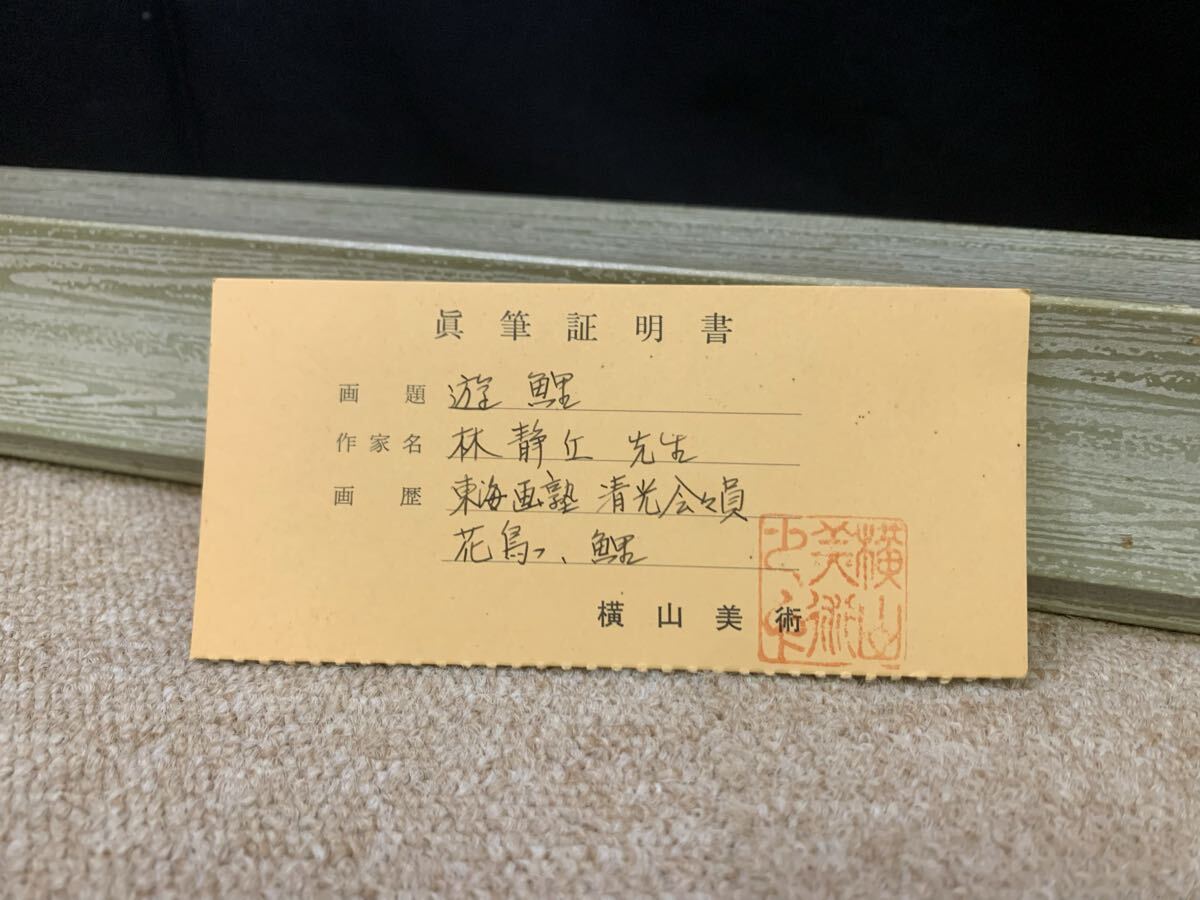 眞筆証明書
画題 遊鯉
作家名 林静丘 先生
画歴 東海画塾 清光会々員
花鳥、鯉
横山美術
横山美術